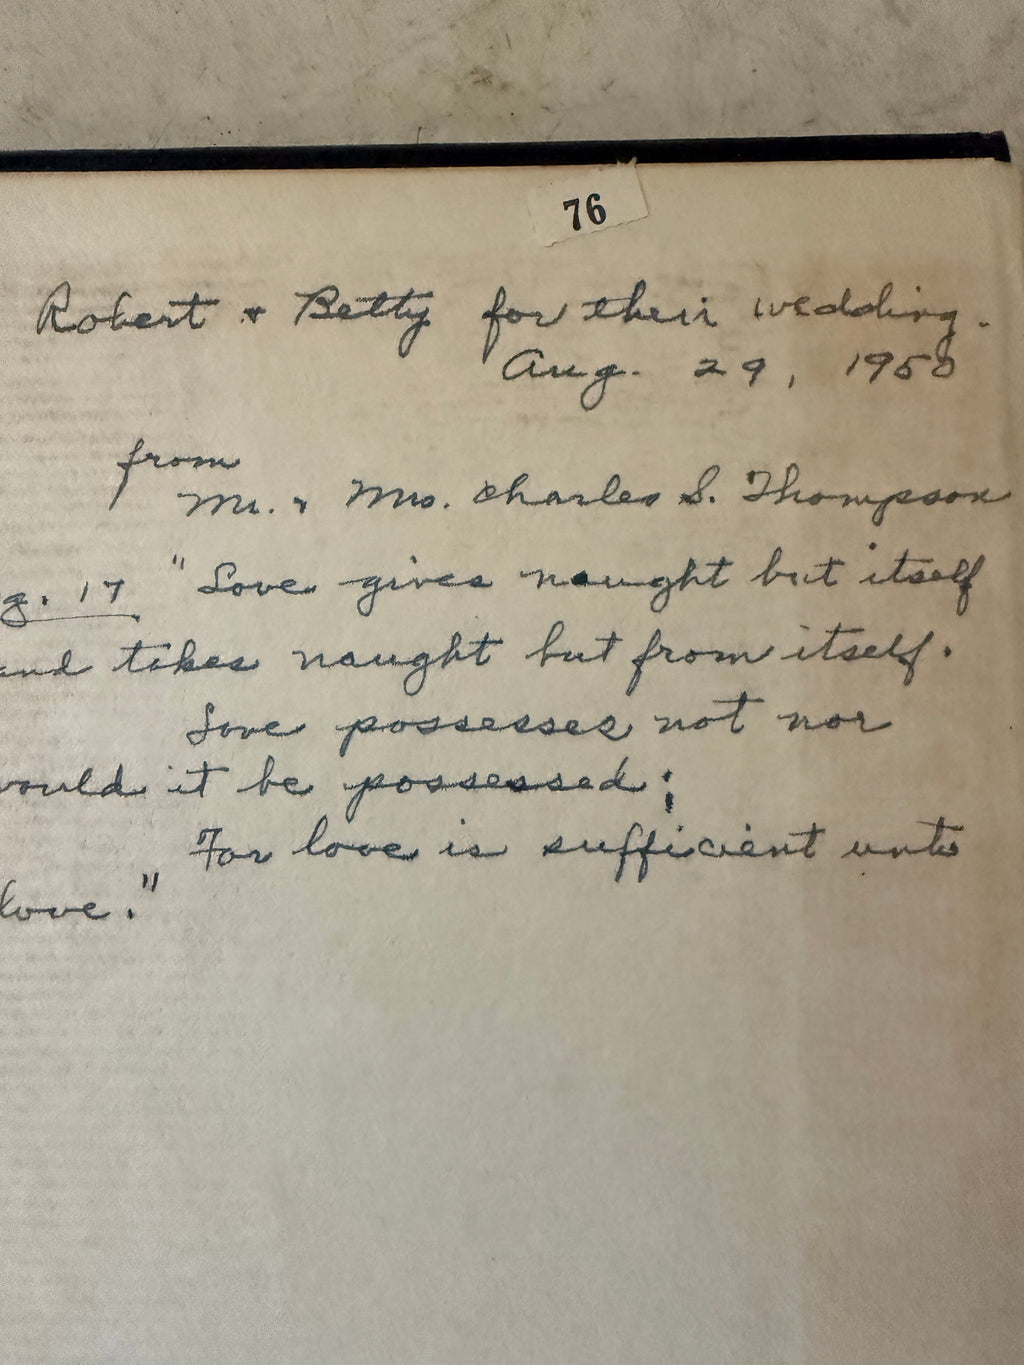 76
Robert + Betty for their wedding.
Aug. 29, 1950
from
Mr. & Mrs. Charles S. Thompson
g. 17 "Love gives naught but itself
and takes naught but from itself.
Love possesses not nor
would it be possessed;
For love is sufficient unto
love."